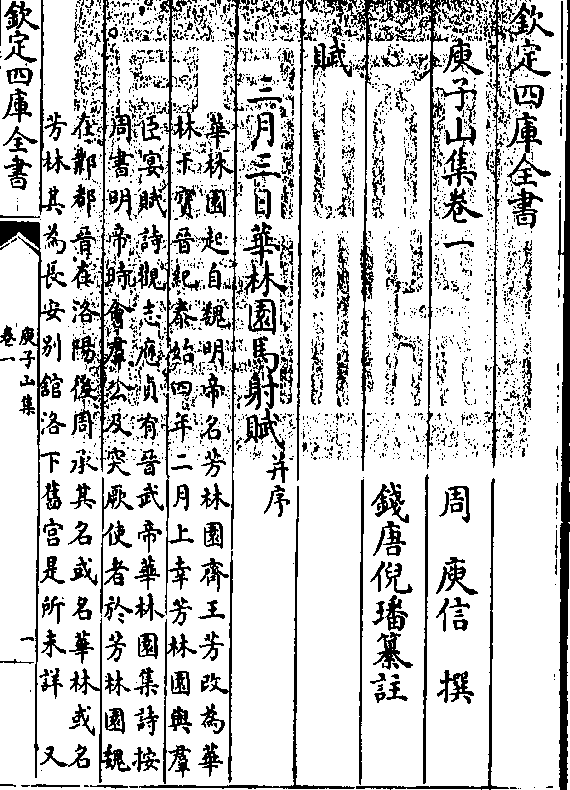 欽定四庫全書
庾子山集卷一
周 庾信 撰
錢唐倪璠纂註
賦
三月三日華林園馬射賦并序
華林園起自魏明帝名芳林園齊王芳改為華
林干寶晉紀泰始四年二月上幸芳林園與羣
臣宴賦詩觀志應貞有晉武帝華林園集詩按
周書明帝時會羣公及突厥使者於芳林園魏
在鄴都晉在洛陽後周承其名或名華林或名
芳林其為長安別館洛下舊宮是所未詳 又
欽定四庫全書
庾子山集
卷一
一